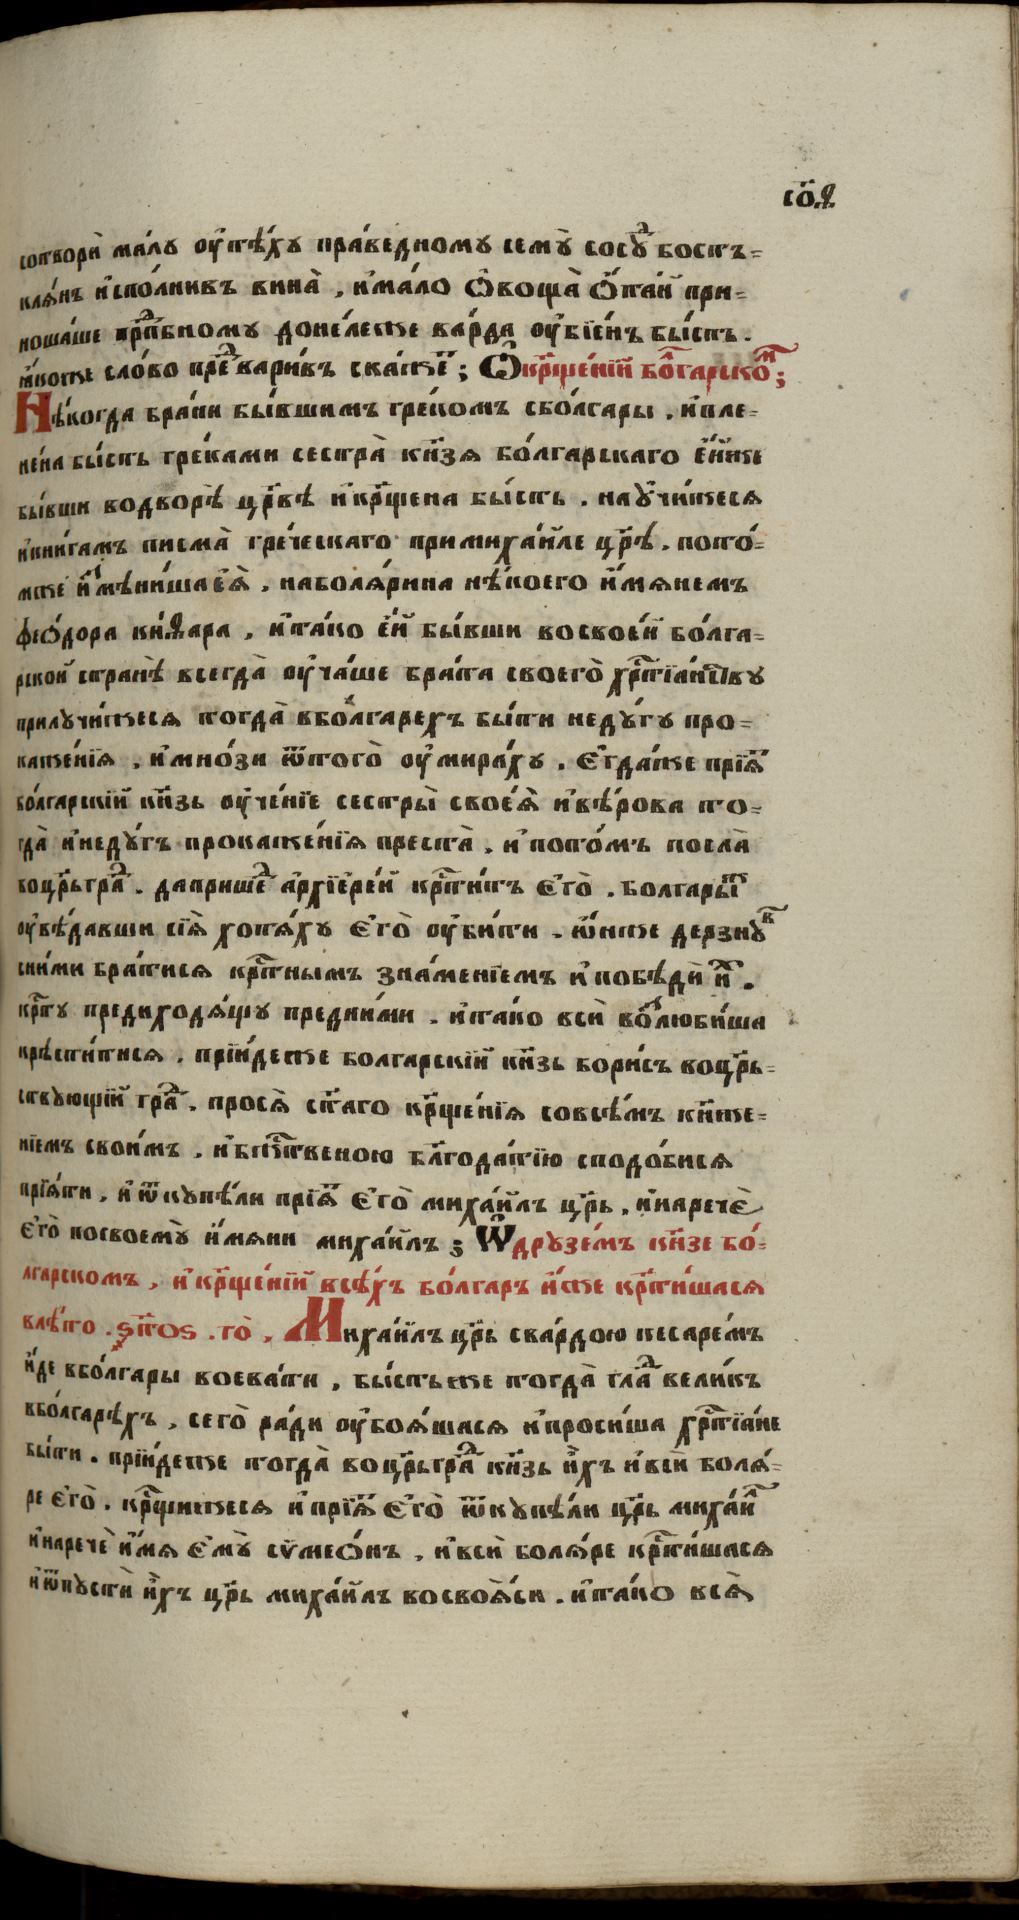 со҃ѳ
сотвори̂ ма́лу ᲂу҆тѣ́ху пра́ведному семꙋ̀ сосꙋⷣ бостъ=
клѧ́нъ и҆спо́лнивъ вина̀ , и҆ма́ло ѻ҆воща̀ ѻ҆та́й при=
ноша́ше прⷣа́вному доне́леже ва́рда ᲂу҆бїе́нъ бы́сть .
ꙗ҆́коже сло́во преⷣвари́въ ска́же ; Ѽ кр҃ще́нїи бо҃га́рскоⷨ ;
Нѣ́когда бра́ни бы́вшимъ гре́комъ сбо́лгары , и҆пле=
не́на бы́сть гре́ками сестра̀ кн҃зѧ бо́лгарскаго є҆́йже
бы́вши водворѣ̀ цр҃вѣ и҆кр҃щена бы́сть . наꙋчи́жесѧ
и҆кни́гамъ писма̀ гре́ческаго примиха́иле цр҃ѣ . пото́=
мже и҆ⷥмѣни́ша є҆ѧ̀ , наболѧ́рина нѣ́коего и҆́мѧнемъ
ѳео́дора ки́ѳара , и҆та́ко є҆́й бы́вши восвое́й бо́лга=
рской странѣ̀ всегда̀ ᲂу҆ча́ше бра́та своего̀ хрⷭ҇тїа́нъⷭ҇тву
прилучи́жесѧ тогда̀ вбо́лгарехъ бы́ти неду́гу про=
каже́нїѧ , и҆мно́зи ѿтого̀ ᲂу҆мира́ху . є҆гда́же прїѧ́тъ
бо́лгарскїй кн҃зь ᲂу҆че́нїе сестры̀ своеѧ̀ и҆вѣ́рова то=
гда̀ и҆неду́гъ прокаже́нїѧ преста̀ . и҆пото́мъ посла̀
воцр҃ьгра́ⷣ . даприше́ⷣ а҆рхїере́й кр҃ти́тъ є҆го̀ . болгары́ⷤ
ᲂу҆вѣ́давши сїѧ̀ хотѧ́ху є҆го̀ ᲂу҆би́ти . ѻ҆́нже дерзнуⷡ
сни́ми бра́тисѧ крⷭ҇тнымъ зна́менїемъ и҆побѣдѝ и҆̀ⷯ .
крⷭ҇ту предиходѧ́щу предни́ми . и҆та́ко всѝ воⷥлюби́ша
крѣсти́тисѧ . прїи́деже болгарскїй кн҃зь бори́съ воцр҃ь=
ствующїй гра́ⷣ . просѧ̀ ст҃аго кр҃ще́нїѧ совсѣ́мъ кн҃же=
нїемъ свои́мъ , и҆бж҃ⷭ҇твеною бл҃года́тїю сподо́бисѧ
прїѧ́ти , и҆ ѿкупѣ́ли прїѧ́тъ є҆го̀ миха́илъ цр҃ь , и҆нарече̂
є҆го̀ посвоемꙋ̀ и҆́мѧни миха́илъ ; Ѽ друзе́мъ кн҃зе бо́=
лгарскомъ , и҆ кр҃ще́нїи всѣ́хъ бо́лгаръ и҆́же кр҃ти́шасѧ
влѣ́то . ѕт҃ѻѕ . го̀ , Миха́илъ цр҃ь сва́рдою кесаре́мъ
и҆́де вбо́лгары воева́ти , бы́стьже тогда̀ глаⷣ вели́къ
вболгарѣ́хъ , сего̀ ра́ди ᲂу҆боѧ́шасѧ и҆проси́ша хрⷭ҇тїа́не
бы́ти . прїи́деже тогда̀ воцр҃ьгра́ⷣ кн҃зь и҆́хъ и҆всѝ болѧ́=
ре є҆го̀ . кр҃щи́жесѧ и҆прїѧ́тъ є҆го̀ ѿкупѣ́ли цр҃ь миха́иⷧ
и҆наречѐ и҆́мѧ є҆мꙋ̀ сѵмео́нъ , и҆всѝ болѧ́ре кр҃ти́шасѧ
и҆ѿпустѝ и҆́хъ цр҃ь миха́илъ восвоѧ́си . и҆та́ко всѧ̀